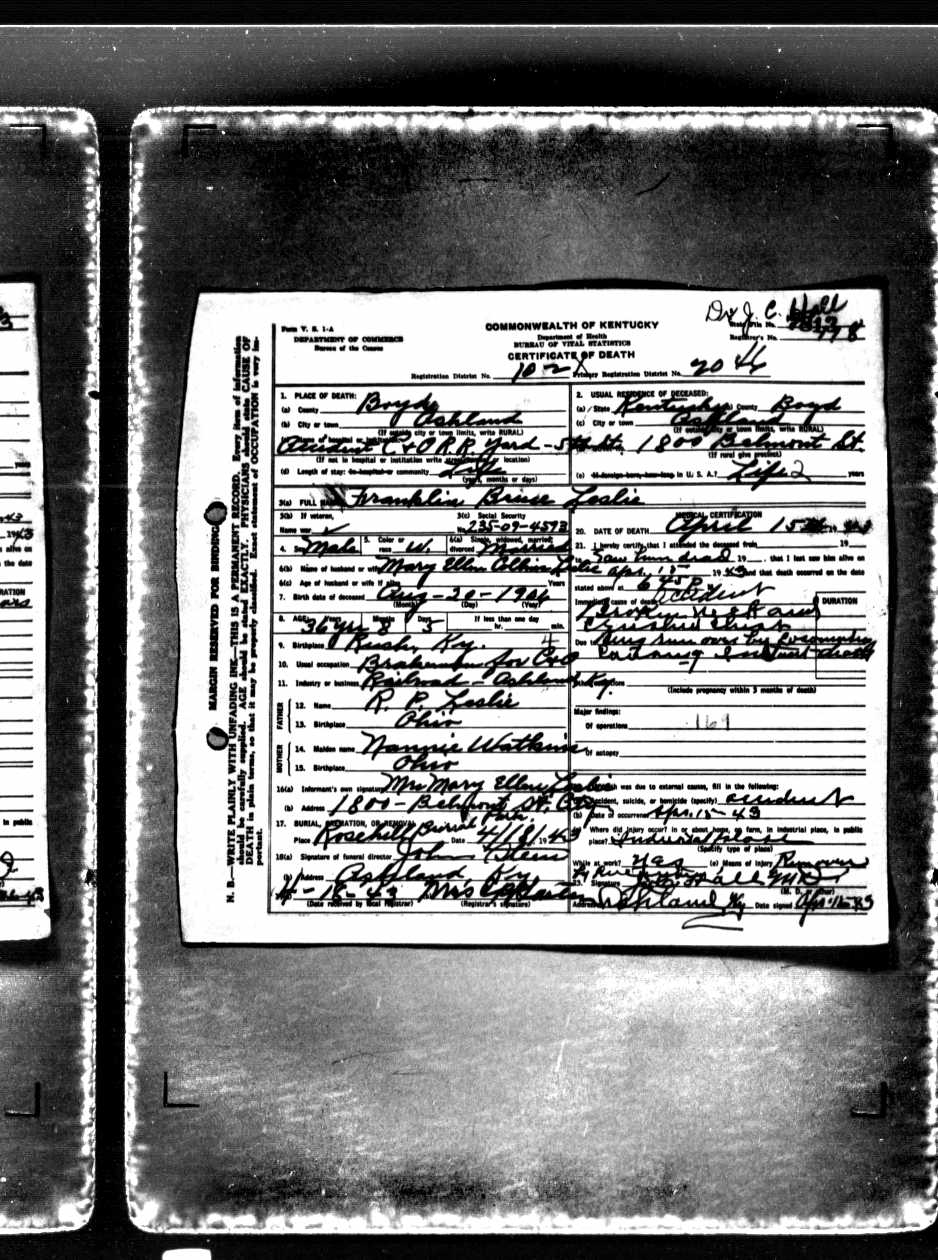 Dr J. C. Hall
Form V. S. 1-A
DEPARTMENT OF COMMERCE
Bureau of the Census
COMMONWEALTH OF KENTUCKY
Department of Health
BUREAU OF VITAL STATISTICS
CERTIFICATE OF DEATH
State File No.
Registrar's No.
Registration District No. 102 Primary Registration District No. 20
MARGIN RESERVED FOR BINDING
N. B.—WRITE PLAINLY WITH UNFADING INK—THIS IS A PERMANENT RECORD. Every item of information
should be carefully supplied. AGE should be stated EXACTLY. PHYSICIANS should state CAUSE OF
DEATH in plain terms, so that it may be properly classified. Exact statement of OCCUPATION is very im-
portant.
1. PLACE OF DEATH:
(a) County Boyd
(b) City or town Ashland
(If outside city or town limits, write RURAL)
Accident C+O R.R. Yard - 5th St.
(If not in hospital or institution write street location)
(d) Length of stay: In hospital or community Life
(years, months or days)
2. USUAL RESIDENCE OF DECEASED:
(a) State Kentucky (b) County Boyd
(c) City or town Ashland
(If outside city or town limits, write RURAL)
1800 Belmont St.
(If rural give precinct)
(e) If foreign born, how long in U. S. A.? Life years
3(a) FULL NAME Franklin Bruse Leslie
3(b) If veteran,
Name war
3(c) Social Security
No. 235-09-4593
4. Sex Male 5. Color or race W. 6(a) Single, widowed, married, divorced Married
6(b) Name of husband or wife Mary Ellen Collins Leslie
6(c) Age of husband or wife if alive Years
7. Birth date of deceased Aug-20-1906
(Month) (Day) (Year)
8. AGE: Years Months Days If less than one day
36 yrs 8 5 hr. min.
9. Birthplace Rush, Ky.
10. Usual occupation Brakeman for C+O
11. Industry or business Railroad - Ashland Ky.
FATHER
12. Name R. P. Leslie
13. Birthplace Ohio
MOTHER
14. Maiden name Nannie Watkins
15. Birthplace Ohio
16(a) Informant's own signature Mrs Mary Ellen Leslie
(b) Address 1800 - Belmont St. City
17. BURIAL, CREMATION, OR REMOVAL
Place Rosehill Burial Park. Date 4/18/1943
18(a) Signature of funeral director John Steen
(b) Address Ashland, Ky
(Date received by local registrar) (Registrar's signature)
MEDICAL CERTIFICATION
20. DATE OF DEATH April 15th 1943
21. I hereby certify, that I attended the deceased from 19
Saw him dead 19, that I last saw him alive on
Apr. 15 1943 and that death occurred on the date
stated above at 6:45 P.
Immediate cause of death Accident
Broken neck and
Crushed Chest
DURATION
Due to being run over by Locomotive
Causing Instant death
Other conditions
(Include pregnancy within 3 months of death)
Major findings:
Of operations 169
Of autopsy
If death was due to external causes, fill in the following:
(a) Accident, suicide, or homicide (specify) accident
(b) Date of occurrence Apr. 15-43
Where did injury occur? In or about home, on farm, in industrial place, in public
place? Industrial place
(Specify type of place)
While at work? Yes (e) Means of injury Run over
23. Signature J. C. Hall M.D.
(M. D. or other)
Address Ashland Ky Date signed Apr. 16-43